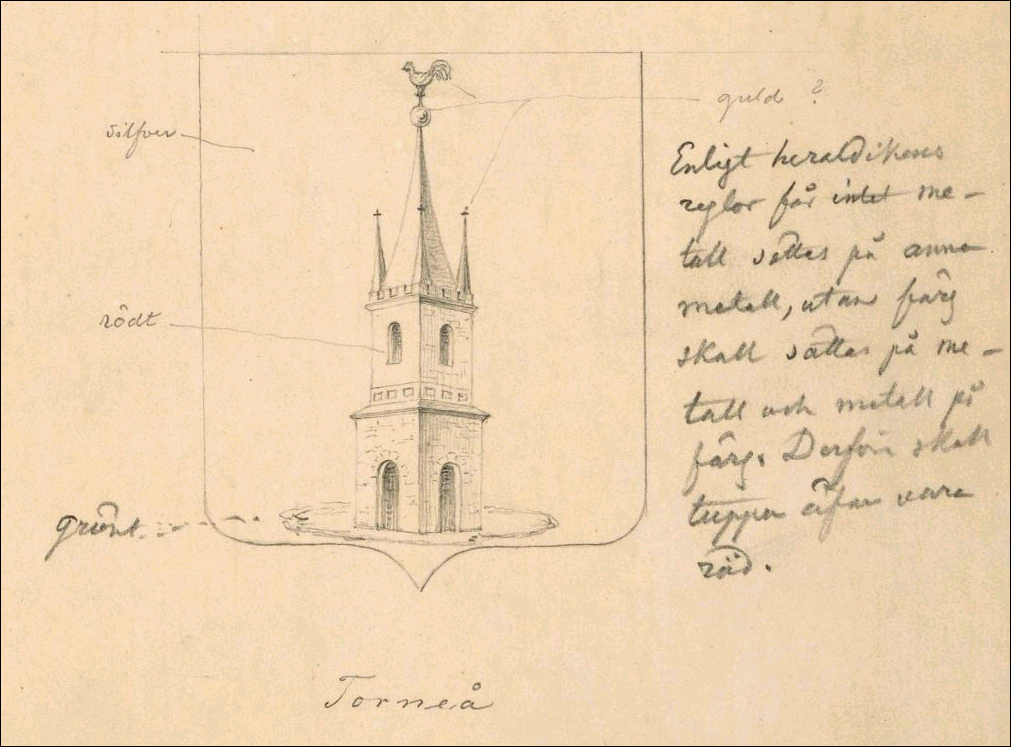 guld ?
silfver
rödt
grönt
Enligt heraldikens
reglor får intet me-
tall sättas på anna
metall, utan färg
skall sättas på me-
tall och metall på
färg. Derför skall
tuppen äfven vara
röd.
Torneå